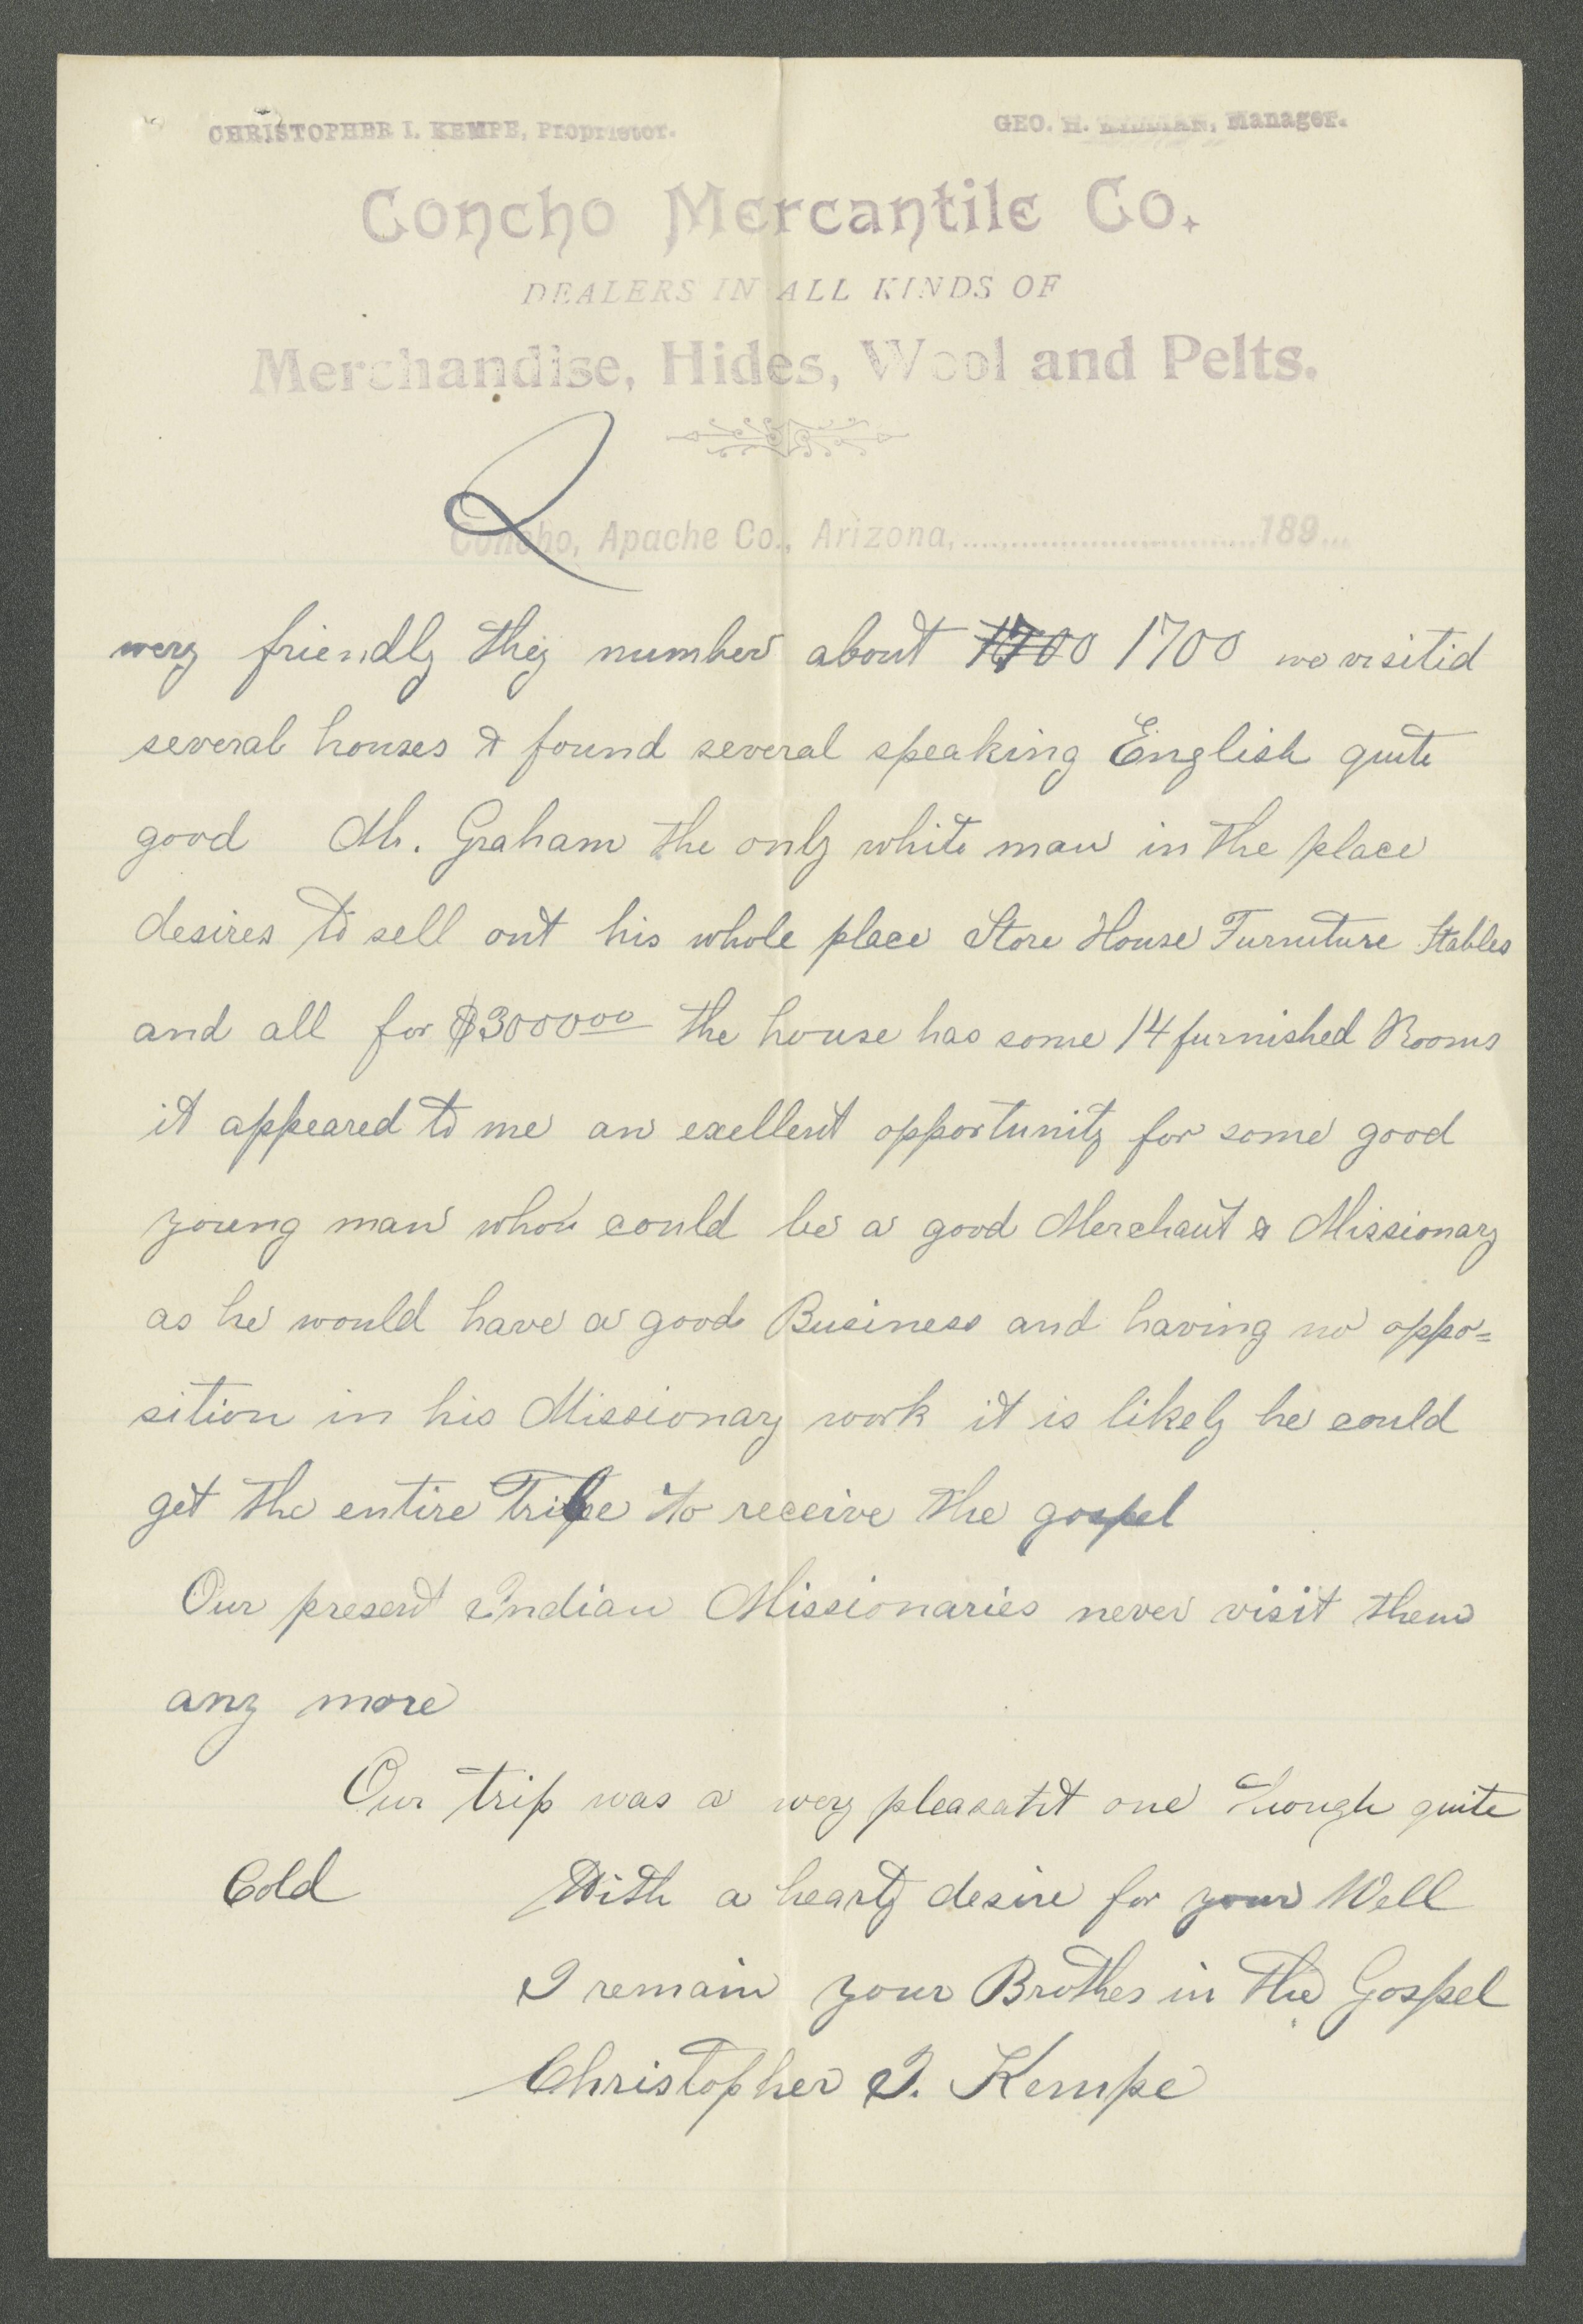 CHRISTOPHER I. KEMPE, Proprietor.
GEO. H. Manager.
Concho Mercantile Co.
DEALERS IN ALL KINDS OF
Merchandise, Hides, Wool and Pelts.
2
Concho, Apache Co., Arizona, 189
wery friendly they number about 1700 1700 we visitid
several houses & found several speaking English quite
good Mr. Graham the only white man in the place
desires to sell out his whole place Store House Furniture Stables
and all for $3000.00 the house has some 14 furnished Rooms
it appeared to me an exellent opportunity for some good
young man who could be a good Merchant & Missionary
as he would have a good Business and having no oppo=
sition in his Missionary work it is likely he could
get the entire Tribe to receive the gospel
Our present Indian Missionaries never visit them
any more
Our trip was a wery pleasatnt one though quite
Cold With a hearty desire for your Well
I remain your Brother in the Gospel
Christopher I. Kempe